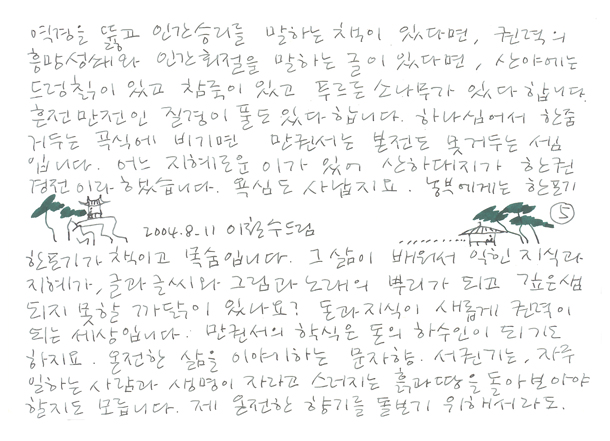 역경을 뚫고 인간승리를 말하는 책이 있다면, 권력의
흥망성쇄와 인간회절을 말하는 글이 있다면, 산야에는
드렁칡이 있고 참죽이 있고 푸르른 소나무가 있다 합니다.
흔전만전인 질경이 풀도 있다 합니다. 하나 심어서 한줌
거두는 곡식에 비기면 만권서는 본전도 못거두는 셈
입니다. 어느 지혜로운 이가 있어 산하대지가 한권
경전이라 했습니다. 욕심도 사납지요. 농부에게는 한포기
⑤
2004.8-11 이철수드림
한포기가 책이고 목숨입니다. 그 삶이 배워서 익힌 지식과
지혜가, 글과 글씨와 그림과 노래의 뿌리가 되고 깊은샘
되지 못할 까닭이 있나요? 돈과 지식이 새롭게 권력이
되는 세상입니다. 만권서의 학식은 돈의 하수인이 되기도
하지요. 온전한 삶을 이야기하는 문자향. 서권기는, 자주
일하는 사람과 생명이 자라고 스러지는 흙과 땅을 돌아보아야
할지도 모릅니다. 제 온전한 향기를 돌보기 위해서라도.